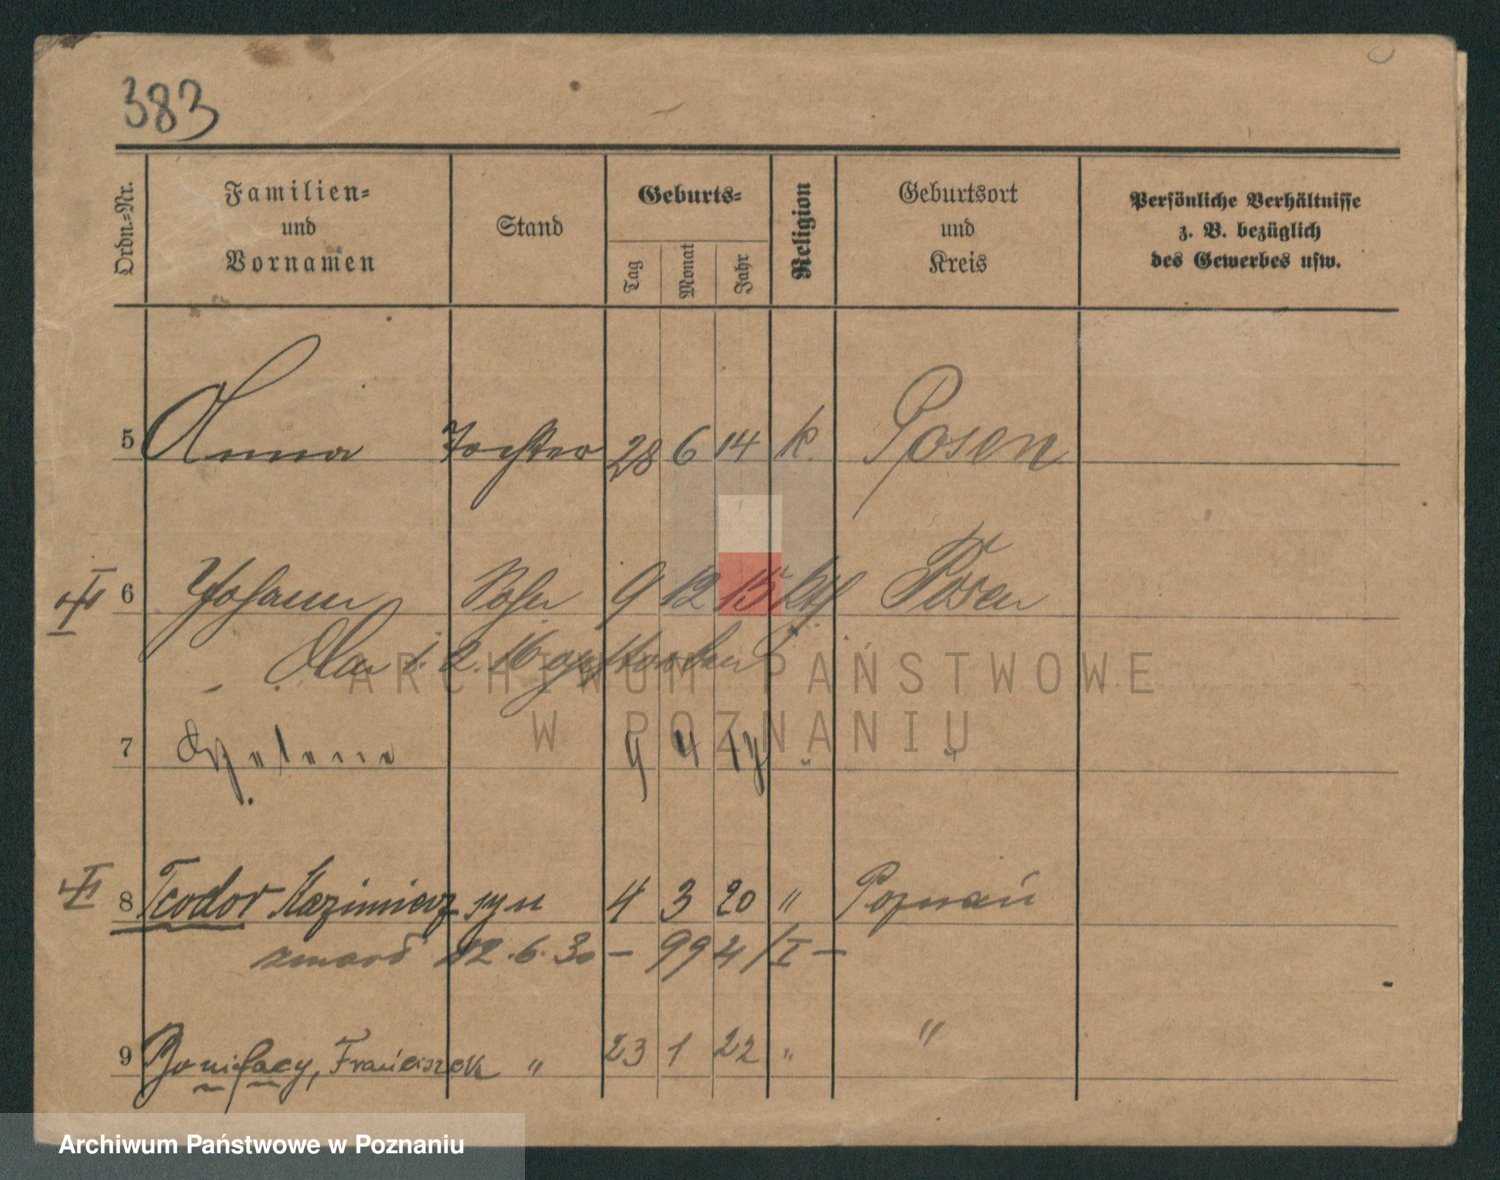 383
Ordn.=Nr.
Familien=
und
Vornamen
Stand
Geburts=
Tag
Monat
Jahr
Religion
Geburtsort
und
Kreis
Persönliche Verhältnisse
z. B. bezüglich
des Gewerbes usw.
5 Anna Tochter 28 6 14 k. Posen
6 Johann Sohn 9 12 15 kth Posen
Am 1. 2. 16 gestorben
ARCHIWUM PAŃSTWOWE
W POZNANIU
7 Helene 9 4 17 " "
8 Teodor Kazimierz syn 4 3 20 " Poznań
zmarł 12.6.30 – 994/I –
9 Bonifacy, Franciszek " 23 1 22 " "
Archiwum Państwowe w Poznaniu